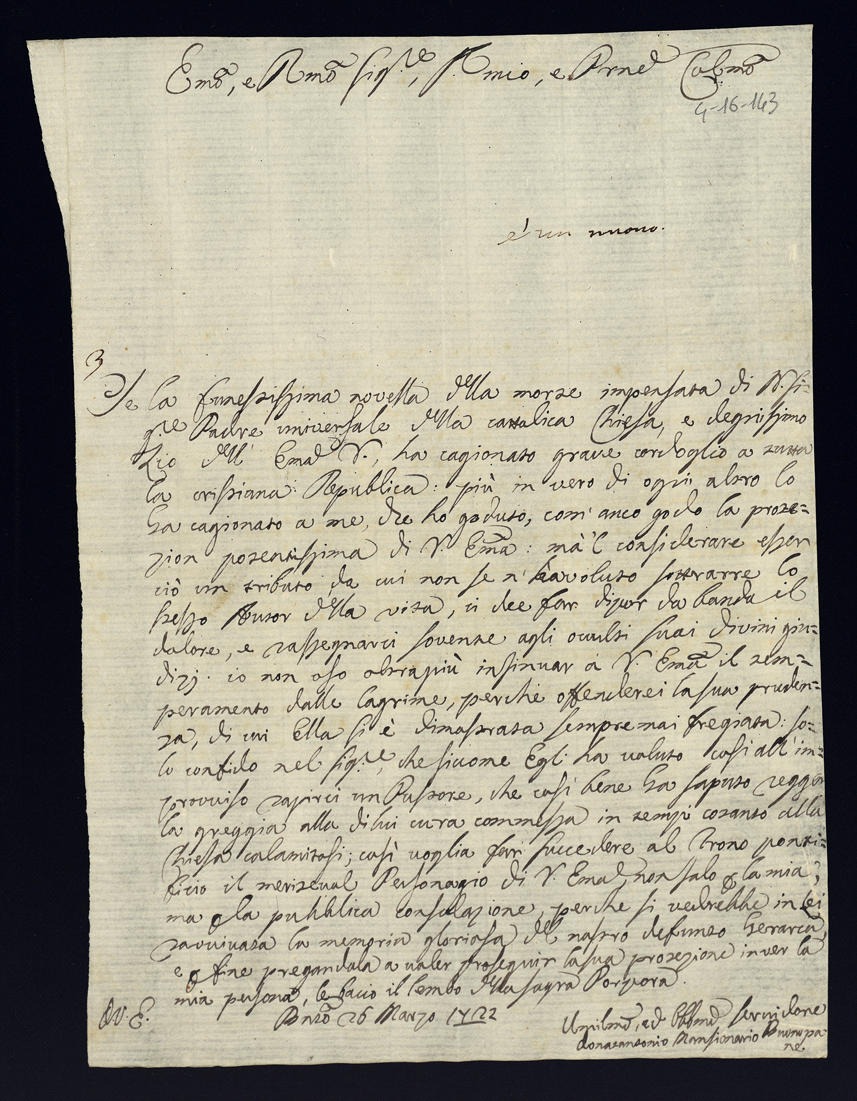 Emo, e Rmo Sigre, P. mio, e Prne Colmo
4-16-143
è un nuovo.
3
Se la funestissima novella della morte impensata di N. Si-
gre Padre universale della cattolica Chiesa, e degnissimo
Zio dell' Ema V., ha cagionato grave cordoglio a tutta
la cristiana Republica: più in vero di ogni altro lo
ha cagionato a me, che ho goduto, com' anco godo la prote-
zion potentissima di V. Ema: mà 'l considerare esser
ciò un tributo da cui non se n' ha voluto sottrarre lo
stesso Autor della vita, ci dee far di por da banda il
dolore, e rassegnarci sovente agli occulti suoi divini giu-
dizj. io non oso oltrapiù insinuar a V. Ema il tem-
peramento dalle lagrime, perchè offenderei la sua pruden-
za, di cui Ella si è dimostrata sempremai fregiata: so-
lo confido nel Sigre, che sicome Egli ha voluto così all' im-
provviso rapirci un Pastore, che così bene ha saputo regger
la greggia alla di lui cura commessa in tempi cotanto alla
Chiesa calamitosi; così voglia far succedere al trono ponti-
ficio il meritevol Personagio di V. Ema, non solo p la mia,
ma p la pubblica consolazione, perche si vedrebbe in lei
ravvivata la memoria gloriosa del nostro defunto Gerarca,
e p fine pregandola a voler proseguir la sua protezione inver la
mia persona, le bacio il lembo della sagra Porpora.
Di V. E.
Bnto 26 Marzo 1722
Umilmo, ed Obblmo servidore
Donatantonio Mansionario Buonpa-
ne.